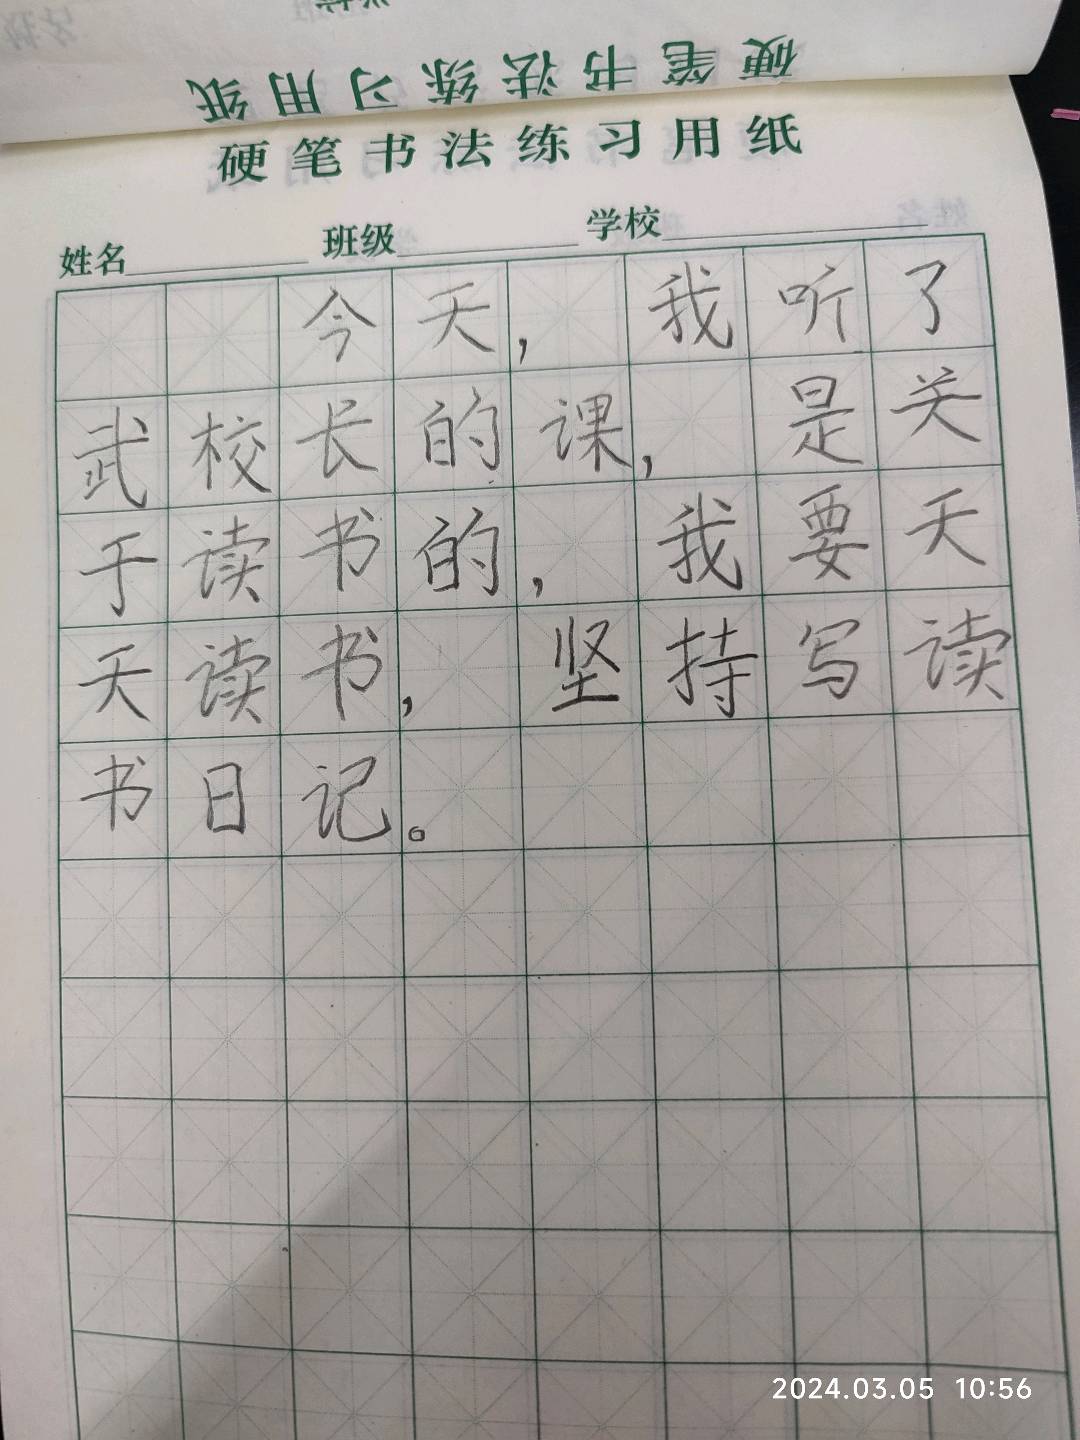 硬笔书法练习用纸
硬笔书法练习用纸
姓名 班级 学校
今天，我听了
武校长的课，是关
于读书的，我要天
天读书，坚持写读
书日记。
2024.03.05 10:56